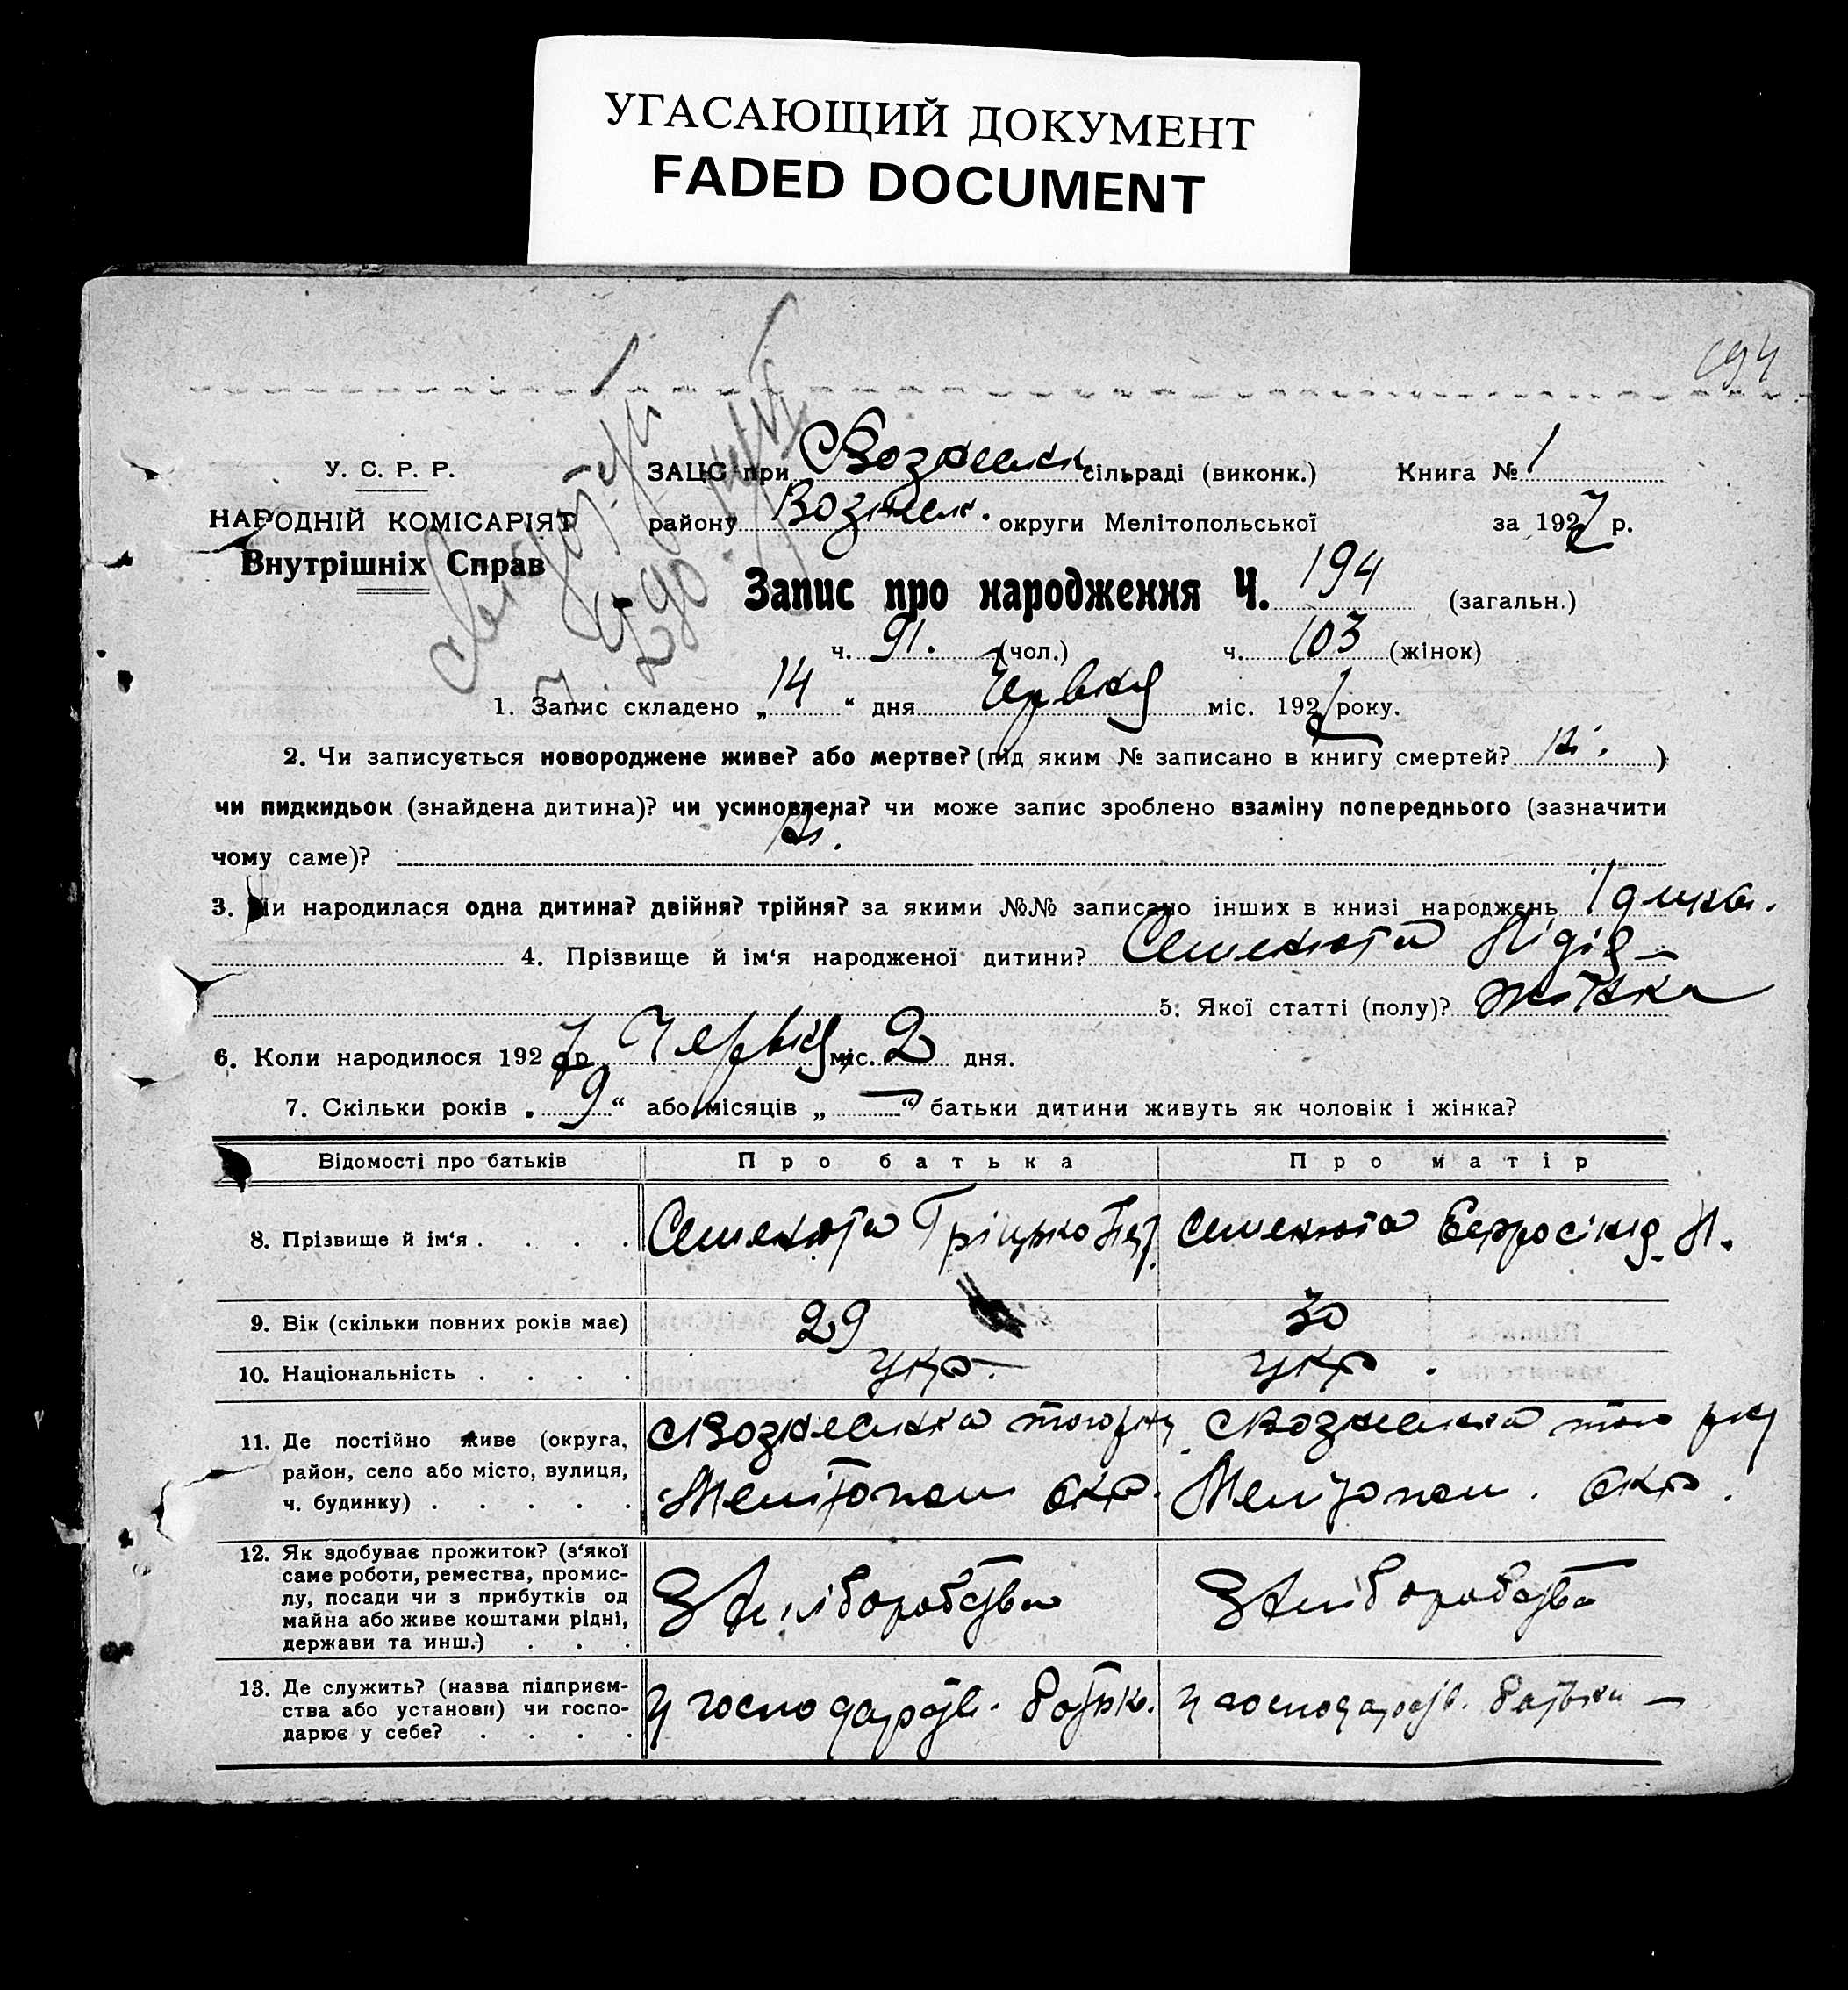 УГАСАЮЩИЙ ДОКУМЕНТ
FADED DOCUMENT
194
У. С. Р. Р.
НАРОДНІЙ КОМІСАРІЯТ
Внутрішніх Справ
ЗАЦС при Вознесенк сільраді (виконк.) Книга № 1
району Вознесен. округи Мелітопольської за 1927 р.
Запис про народження Ч. 194 (загальн.)
ч. 91. (чол.) ч. 103 (жінок)
1. Запис складено „14“ дня Червня міс. 1927 року.
2. Чи записується новороджене живе? або мертве? (під яким № записано в книгу смертей? ні. )
чи пидкидьок (знайдена дитина)? чи усиновлена? чи може запис зроблено взаміну попереднього (зазначити
чому саме)? ні.
3. Чи народилася одна дитина? двійня? трійня? за якими №№ записано інших в книзі народжень 1
4. Прізвище й ім'я народженої дитини? Семенюта Лідія
5. Якої статті (полу)? жінка
6. Коли народилося 1927 р. Червня міс. 2 дня.
7. Скільки років „9“ або місяців „—“ батьки дитини живуть як чоловік і жінка?
Відомості про батьків Про батька Про матір
8. Прізвище й ім'я . . . . Семенюта Гріцько Пет. Семенюта Евфросінія
9. Вік (скільки повних років має) 29 30
10. Національність . . . . укр. укр.
11. Де постійно живе (округа, район, село або місто, вулиця, ч. будинку) . . . . .
с Вознесенка того рну
Мелітопол окр.
с Вознесенка того рну
Мелітопол. окр.
12. Як здобуває прожиток? (з'якої
саме роботи, ремества, промис-
лу, посади чи з прибутків од
майна або живе коштами рідні,
держави та инш.) . . .
З хліборобства З хліборобства
13. Де служить? (назва підприєм-
ства або установи) чи госпо-
дарює у себе? . . . .
у господарств. батьк. у господарств. батьки —